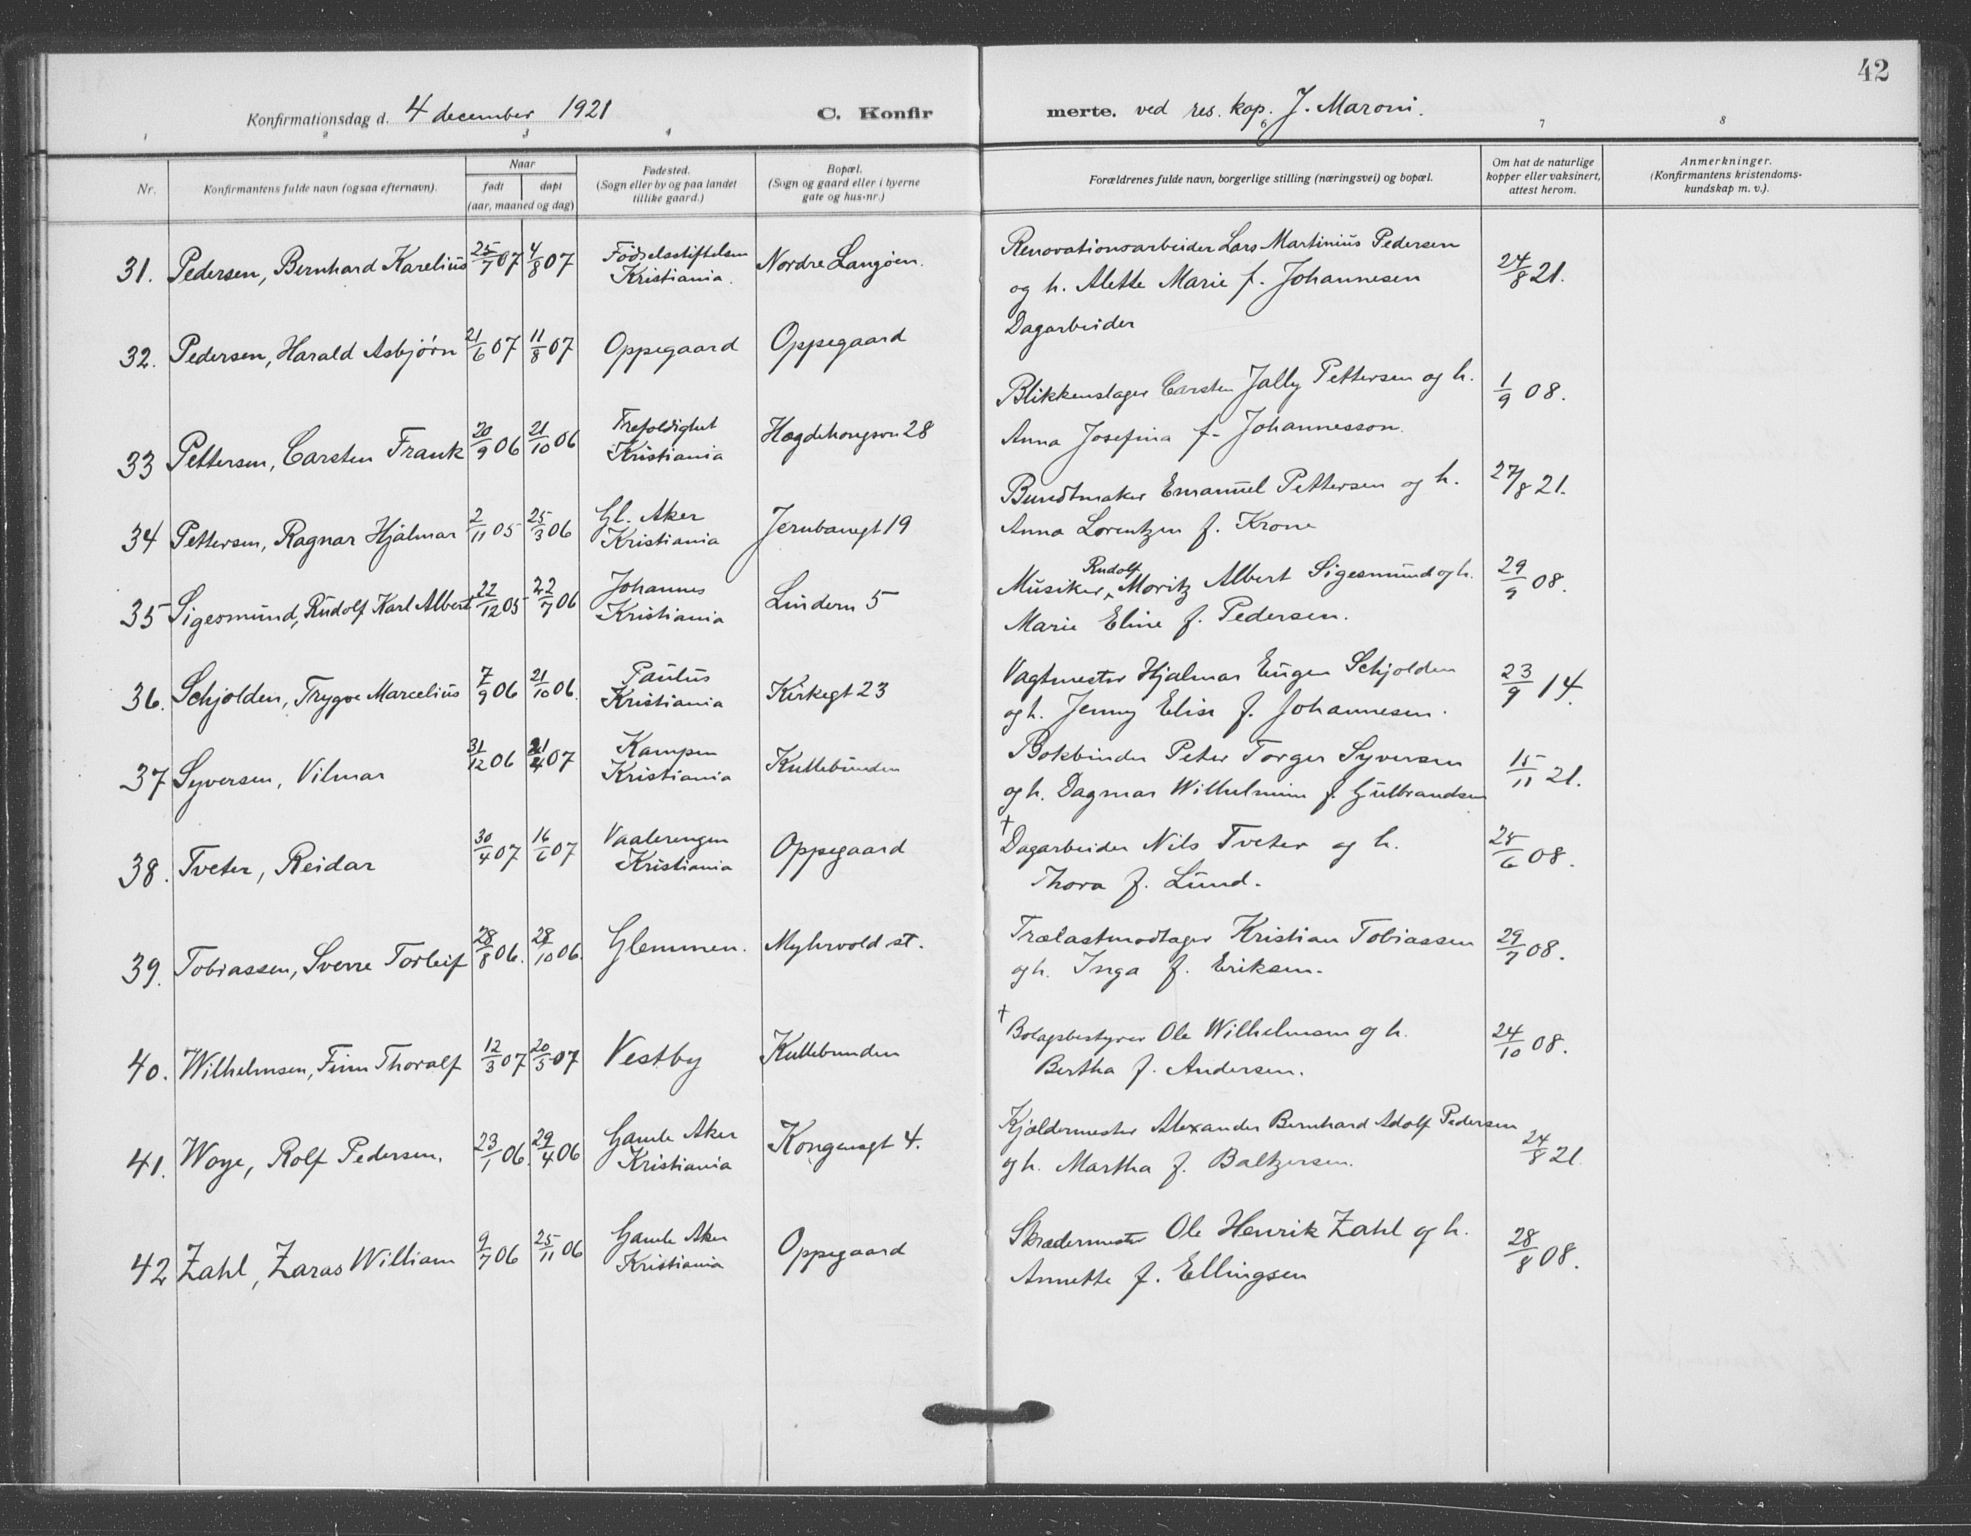 42
Konfirmationsdag d. 4 december 1921 C. Konfirmerte. ved res. kap. J. Maroni.
1 2 3 4 6 7 8
Nr.
Konfirmantens fulde navn (ogsaa efternavn).
Naar
født døpt
(aar, maaned og dag)
Fødested.
(Sogn eller by og paa landet
tillike gaard.)
Bopæl.
(Sogn og gaard eller i byerne
gate og hus-nr.)
Forældrenes fulde navn, borgerlige stilling (næringsvei) og bopæl.
Om hat de naturlige
kopper eller vaksinert,
attest herom.
Anmerkninger.
(Konfirmantens kristendoms-
kundskap m. v.).
31. Pedersen, Bernhard Karelius 25/7 07 4/8 07 Fødselsstiftelsen
Kristiania. Nordre Langøen.
Renovationsarbeider Lars Martinius Pedersen
og h. Alette Marie f. Johannesen
24/8 21.
32. Pedersen, Harald Asbjørn 21/6 07 11/8 07 Oppegaard Oppegaard
Dagarbeider
33 Pettersen, Carsten Frank 20/9 06 21/10 06 Trefoldighet
Kristiania Hægdehougsvn 28
Blikkenslager Carsten Jally Pettersen og h.
Anna Josefina f. Johannesson.
1/9 08.
34 Pettersen, Ragnar Hjalmar 2/11 05 25/3 06 Gl. Aker
Kristiania Jernbanegt 19
Bundtmaker Emanuel Pettersen og h.
Anna Lorentzen f. Krone
27/8 21.
35 Sigesmund, Rudolf Karl Albert 22/12 05 22/7 06 Johannes
Kristiania Lindern 5
Musiker Rudolf Moritz Albert Sigesmund og h.
Marie Eline f. Pedersen.
29/9 08.
36. Schjolden, Trygve Marcelius 7/9 06 21/10 06. Paulus
Kristiania Kirkegt 23
Vagtmester Hjalmar Eugen Schjolden
og h. Jenny Elise f. Johannesen.
23/9 14.
37 Syversen, Vilmar 31/12 06 21/4 07 Kampen
Kristiania Kullebunden
Bokbinder Peter Torger Syversen
og h. Dagmar Wilhelmine f. Gulbrandsen
15/11 21.
38. Tveter, Reidar 30/4 07 16/6 07 Vaalerengen
Kristiania Oppegaard
† Dagarbeider Nils Tveter og h.
Thora f. Lund.
25/6 08.
39. Tobiassen, Sverre Torleif 28/8 06. 28/10 06. Glemmen. Myhrvold st.
Trælastmodtager Kristian Tobiassen
og h. Inga f. Eriksen.
29/7 08.
40. Wilhelmsen, Finn Thoralf 12/3 07 20/5 07 Vestby Kullebunden
† Bolagsbestyrer Ole Wilhelmsen og h.
Bertha f. Andersen.
24/10 08.
41. Woye, Rolf Pedersen. 23/1 06. 29/4 06 Gamle Aker
Kristiania Kongensgt 4.
Kjældermester Alexander Bernhard Adolf Pedersen
og h. Martha f. Baltzersen.
24/8 21.
42 Zahl, Zaras William 9/7 06 25/11 06 Gamle Aker
Kristiania Oppegaard
Skrædermester Ole Henrik Zahl og h.
Annette f. Ellingsen
28/8 08.